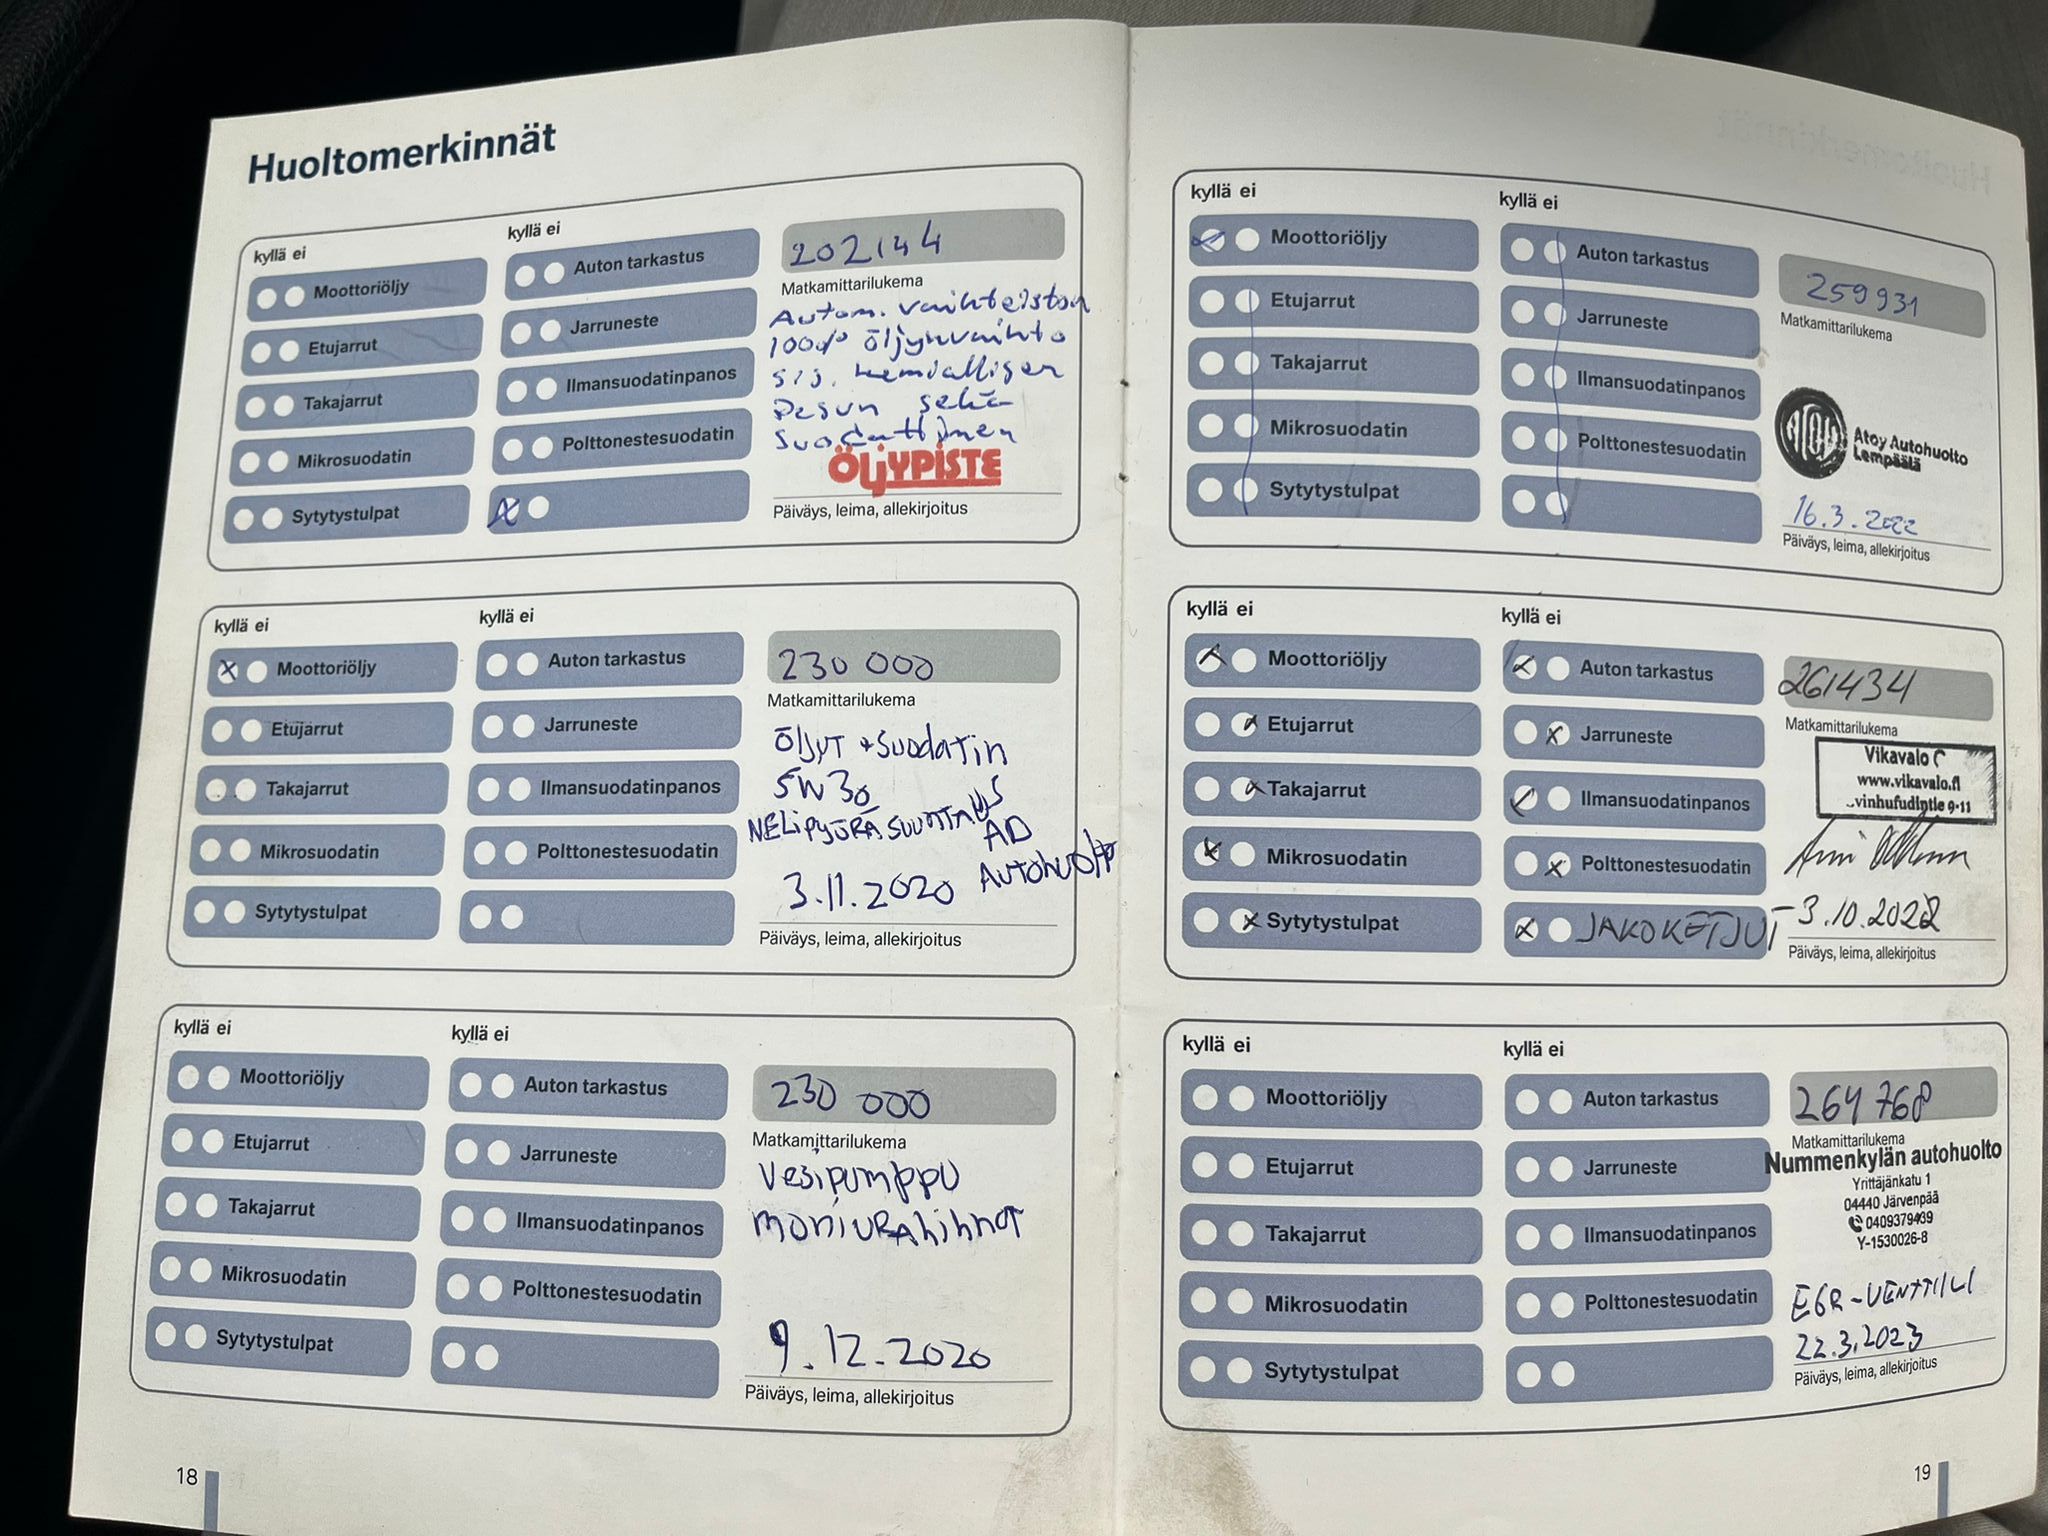 Huoltomerkinnät
kyllä ei
kyllä ei
Moottoriöljy
Etujarrut
Takajarrut
Mikrosuodatin
Sytytystulpat
Auton tarkastus
Jarruneste
Ilmansuodatinpanos
Polttonestesuodatin
X
202144
Matkamittarilukema
Autom. vaihteiston
100% öljynvaihto
sis. kemiallisen
Pesun sekä
suodattimen
ÖLJYPISTE
Päiväys, leima, allekirjoitus
kyllä ei
kyllä ei
X Moottoriöljy
Etujarrut
Takajarrut
Mikrosuodatin
Sytytystulpat
Auton tarkastus
Jarruneste
Ilmansuodatinpanos
Polttonestesuodatin
230 000
Matkamittarilukema
ÖljyT + Suodatin
5W30
NELiPYÖRÄSUUNTAUS
AD
AUTOHUOLTO
3.11.2020
Päiväys, leima, allekirjoitus
kyllä ei
kyllä ei
Moottoriöljy
Etujarrut
Takajarrut
Mikrosuodatin
Sytytystulpat
Auton tarkastus
Jarruneste
Ilmansuodatinpanos
Polttonestesuodatin
230 000
Matkamittarilukema
Vesipumppu
moniurahihnat
9.12.2020
Päiväys, leima, allekirjoitus
18
kyllä ei
kyllä ei
Moottoriöljy
Etujarrut
Takajarrut
Mikrosuodatin
Sytytystulpat
Auton tarkastus
Jarruneste
Ilmansuodatinpanos
Polttonestesuodatin
259931
Matkamittarilukema
Atoy Autohuolto
Lempäälä
16.3.2022
Päiväys, leima, allekirjoitus
kyllä ei
kyllä ei
X Moottoriöljy
X Etujarrut
X Takajarrut
X Mikrosuodatin
X Sytytystulpat
X Auton tarkastus
X Jarruneste
X Ilmansuodatinpanos
X Polttonestesuodatin
X JAKOKETJUT
261434
Matkamittarilukema
Vikavalo
www.vikavalo.fi
9-11
3.10.2022
Päiväys, leima, allekirjoitus
kyllä ei
kyllä ei
Moottoriöljy
Etujarrut
Takajarrut
Mikrosuodatin
Sytytystulpat
Auton tarkastus
Jarruneste
Ilmansuodatinpanos
Polttonestesuodatin
264768
Matkamittarilukema
Nummenkylän autohuolto
Yrittäjänkatu 1
04440 Järvenpää
0409379439
Y-1530026-8
EGR-VENTTIILI
22.3.2023
Päiväys, leima, allekirjoitus
19